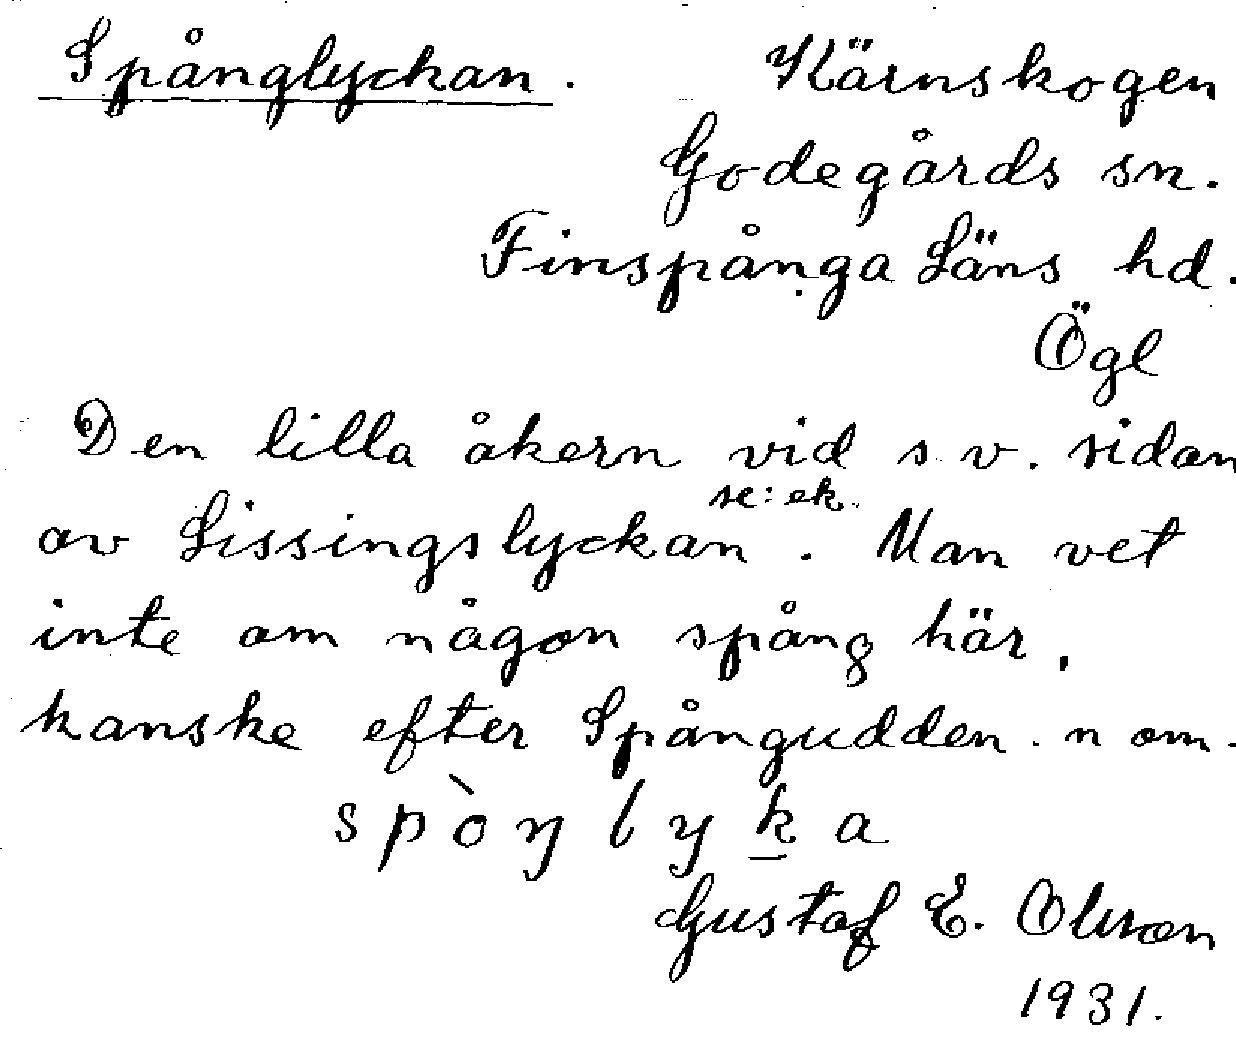 Spånglyckan. Kärnskogen
Godegårds sn.
Finspånga Läns hd.
Ögl
Den lilla åkern vid s v. sidan
se: ek.
av Lissingslyckan. Man vet
inte om någon spång här,
kanske efter Spångudden. n om.
spòŋlyka
Gustaf E. Olsson
1931.